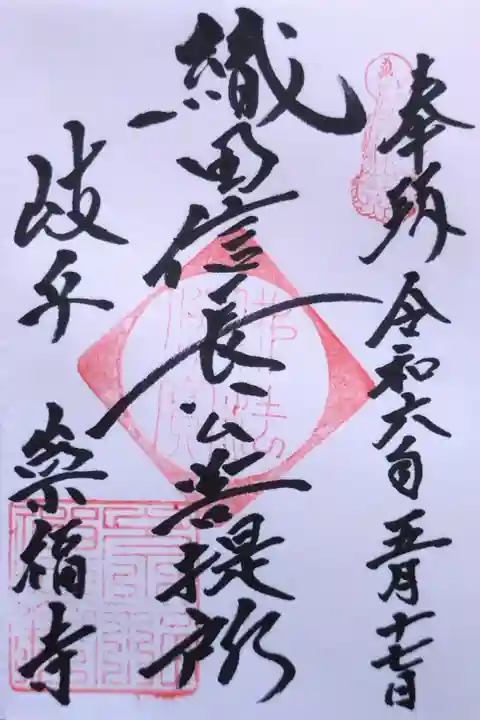 奉拝 令和六年 五月十七日
織田信長公菩提所
岐阜 崇福寺